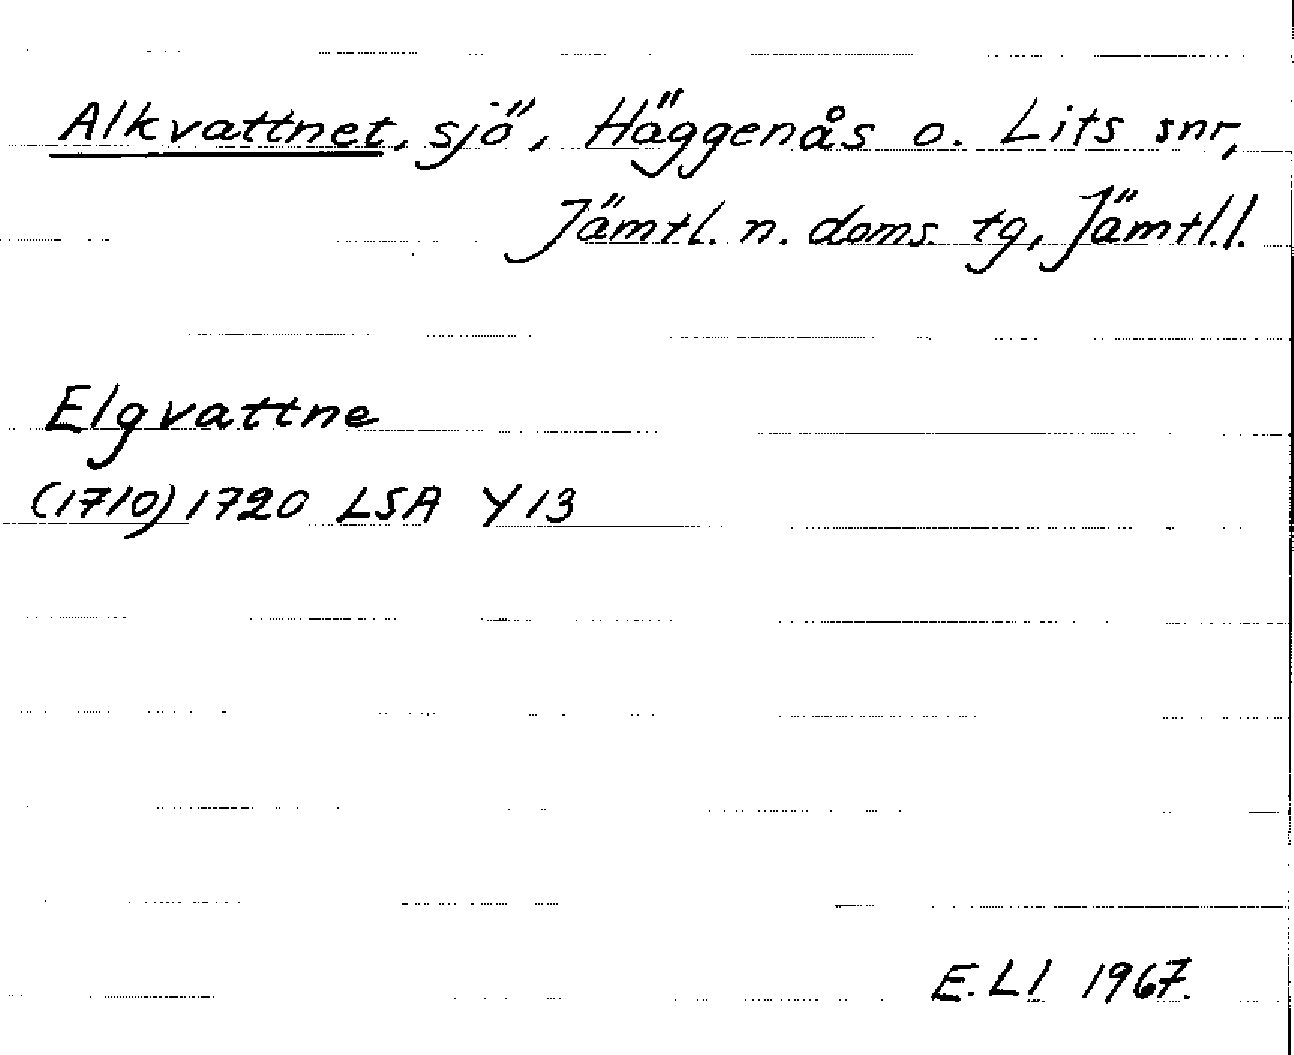 Alkvattnet, sjö, Häggenås o. Lits snr,
Jämtl. n. doms. tg, Jämtl.l.
Elgvattne
(1710) 1720 LSA Y 13
E. Ll 1967.